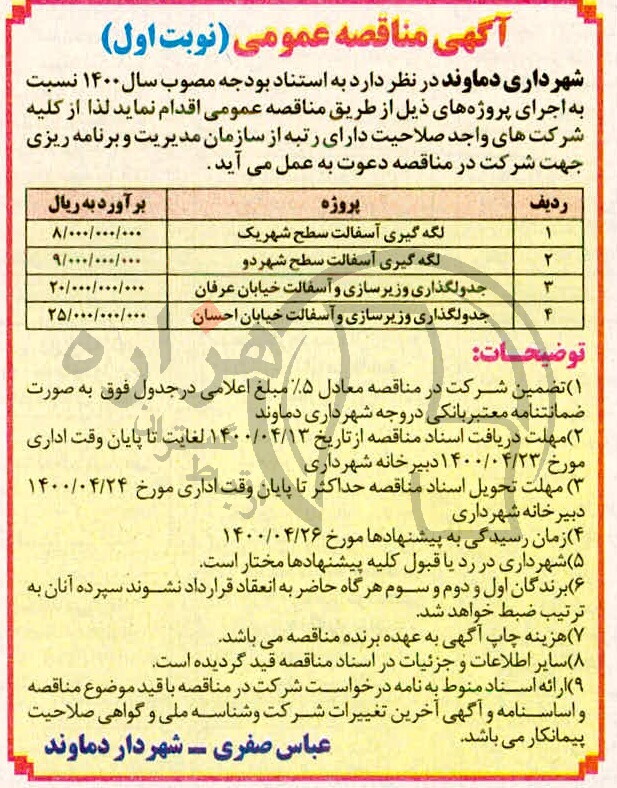 آگهی مناقصه عمومی (نوبت اول)
شهرداری دماوند در نظر دارد به استناد بودجه مصوب سال ۱۴۰۰ نسبت
به اجرای پروژه‌های ذیل از طریق مناقصه عمومی اقدام نماید لذا از کلیه
شرکت های واجد صلاحیت دارای رتبه از سازمان مدیریت و برنامه ریزی
جهت شرکت در مناقصه دعوت به عمل می آید .
ردیف پروژه برآورد به ریال
۱ لگه گیری آسفالت سطح شهر یک ۸/۰۰۰/۰۰۰/۰۰۰
۲ لگه گیری آسفالت سطح شهر دو ۹/۰۰۰/۰۰۰/۰۰۰
۳ جدولگذاری وزیرسازی و آسفالت خیابان عرفان ۲۰/۰۰۰/۰۰۰/۰۰۰
۴ جدولگذاری وزیرسازی و آسفالت خیابان احسان ۲۵/۰۰۰/۰۰۰/۰۰۰
توضیحات:
۱)تضمین شرکت در مناقصه معادل ۵٪ مبلغ اعلامی در جدول فوق به صورت
ضمانتنامه معتبر بانکی در وجه شهرداری دماوند
۲)مهلت دریافت اسناد مناقصه از تاریخ ۱۴۰۰/۰۴/۱۳ لغایت تا پایان وقت اداری
مورخ ۱۴۰۰/۰۴/۲۳ دبیرخانه شهرداری
۳) مهلت تحویل اسناد مناقصه حداکثر تا پایان وقت اداری مورخ ۱۴۰۰/۰۴/۲۴
دبیرخانه شهرداری
۴)زمان رسیدگی به پیشنهادها مورخ ۱۴۰۰/۰۴/۲۶
۵)شهرداری در رد یا قبول کلیه پیشنهادها مختار است.
۶)برندگان اول و دوم و سوم هرگاه حاضر به انعقاد قرارداد نشوند سپرده آنان به
ترتیب ضبط خواهد شد.
۷)هزینه چاپ آگهی به عهده برنده مناقصه می باشد.
۸)سایر اطلاعات و جزئیات در اسناد مناقصه قید گردیده است.
۹)ارائه اسناد منوط به نامه درخواست شرکت در مناقصه با قید موضوع مناقصه
و اساسنامه و آگهی آخرین تغییرات شرکت وشناسه ملی و گواهی صلاحیت
پیمانکار می باشد.
عباس صفری ــ شهردار دماوند
هزاره